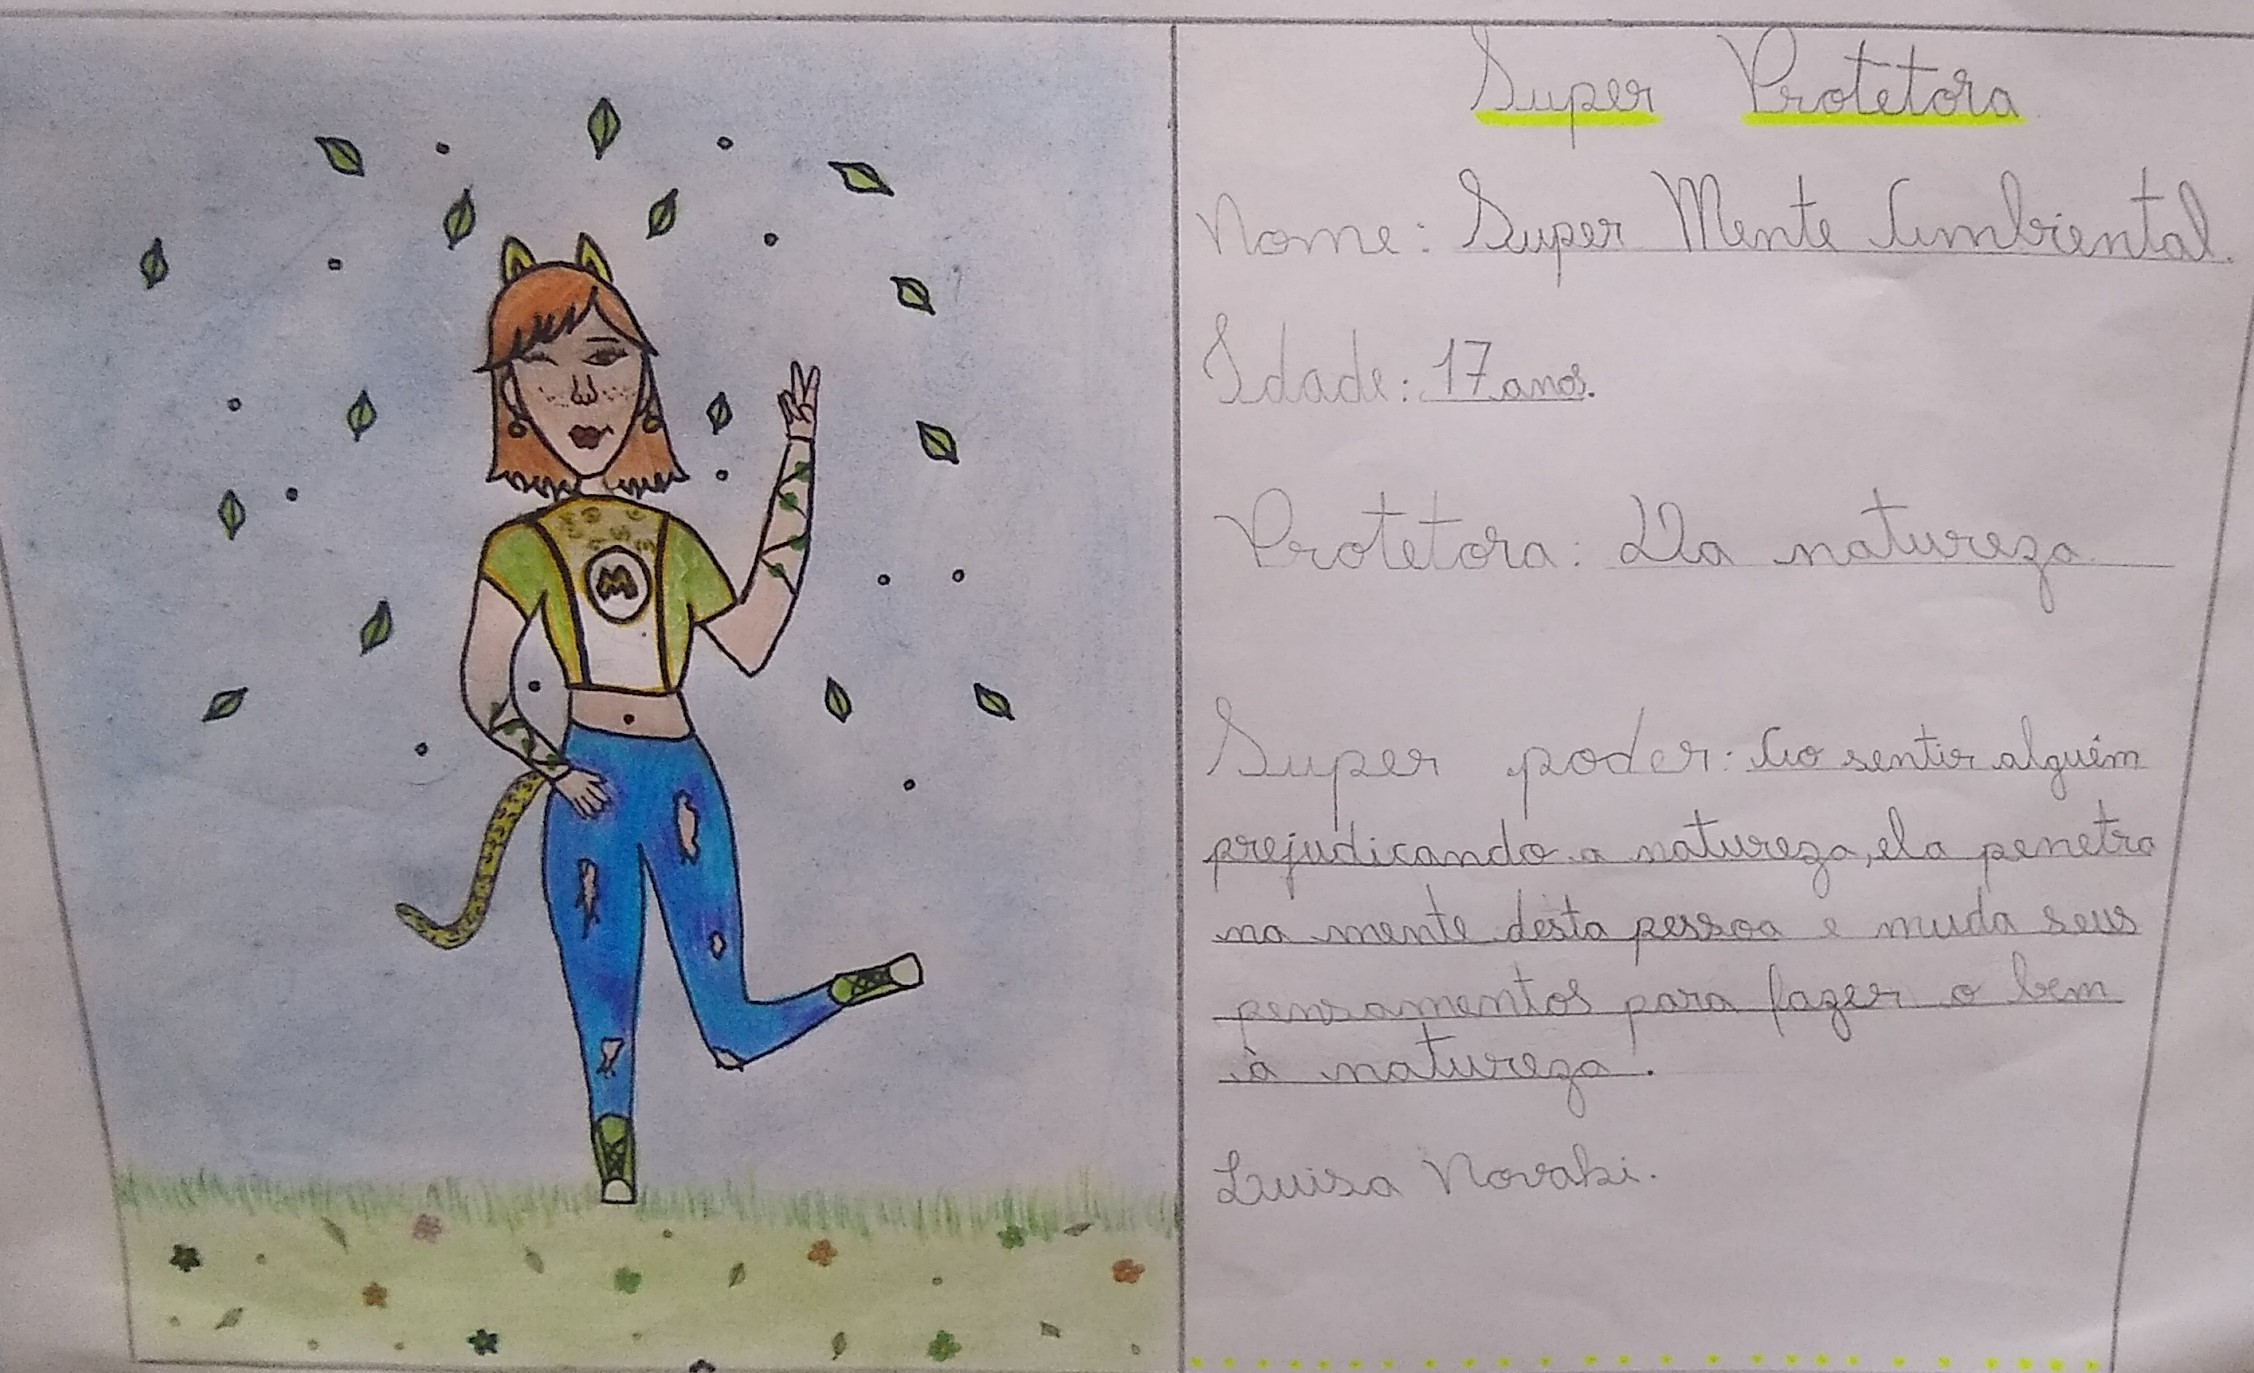 Super Protetora
Nome: Super Mente Ambiental.
Idade: 17 anos.
Protetora: Da natureza
Super poder: Ao sentir alguém
prejudicando a natureza, ela penetra
na mente desta pessoa e muda seus
pensamentos para fazer o bem
à natureza.
Luisa Novaki.
M